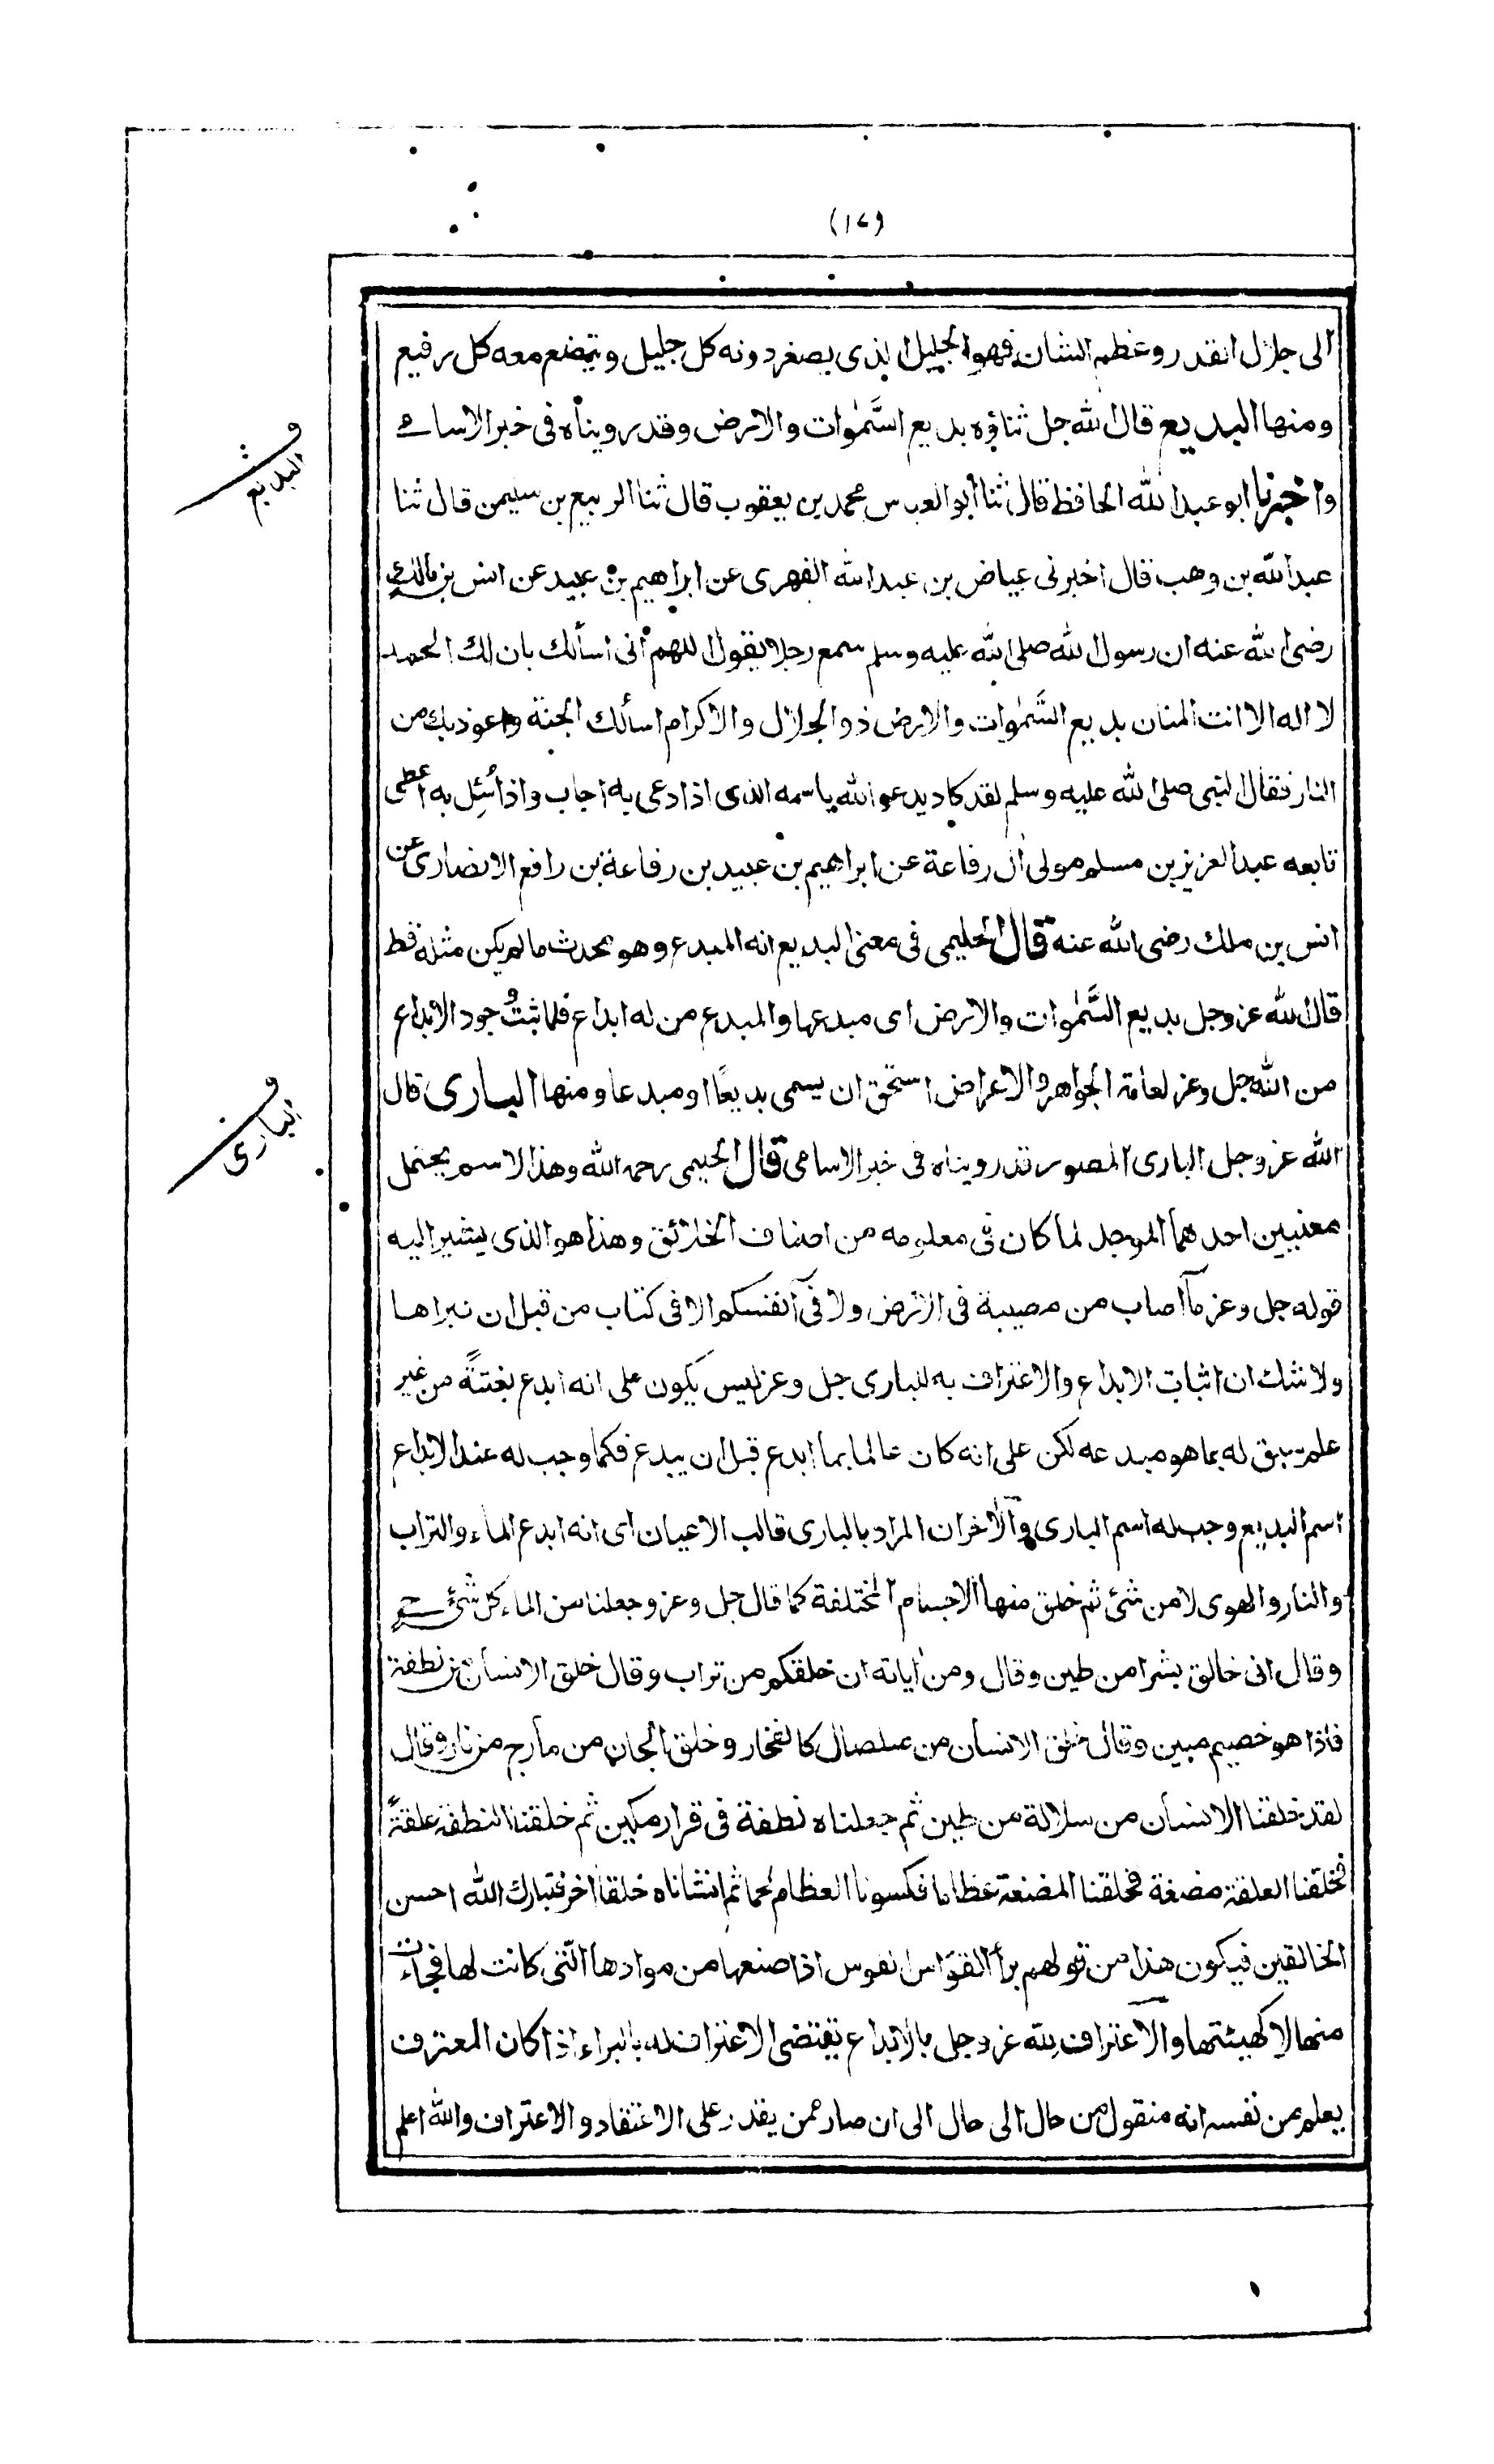 (١٧)
الى جلال القدر وعظم الشان فهو الجليل الذى يصغر دونه كل جليل ويتضع معه كل رفيع
ومنها البديع قال الله جل ثناؤه بديع السَّمٰوات والارض وقد رويناه فى خبر الاسامى
واخبرنا ابو عبد الله الحافظ قال ثنا أبو العباس محمد بن يعقوب قال ثنا الربيع بن سليمن قال ثنا
عبد الله بن وهب قال اخبرنى عياض بن عبد الله الفهرى عن ابراهيم بن عبيد عن انس بن مالك
رضى الله عنه ان رسول الله صلى الله عليه وسلم سمع رجلا يقول اللهم انى اسألك بان لك الحمد
لا اله الا انت المنان بديع السَّمٰوات والارض ذو الجلال والاكرام اسألك الجنة واعوذ بك من
النار فقال النبى صلى الله عليه وسلم لقد كاد يدعو الله باسمه الذى اذا دعى به اجاب واذا سُئِل به اعطى
تابعه عبد العزيز بن مسلم مولى اٰل رفاعة عن ابراهيم بن عبيد بن رفاعة بن رافع الانصارى عن
انس بن ملك رضى الله عنه قال الحليمى فى معنى البديع انه المبدع وهو محدث ما لم يكن مثله قط
قال الله عز وجل بديع السَّمٰوات والارض اى مبدعها والمبدع من له ابداع فلما ثبت وُجود الابداع
من الله جل وعز لعامة الجواهر والاعراض استحق ان يسمى بديعًا او مبدعا ومنها البارى قال
الله عز وجل البارى المصور قد رويناه فى خبر الاسامى قال الحليمى رحمه الله وهذا الاسم يحتمل
معنيين احدهما الموجد لما كان فى معلومه من اصناف الخلائق وهذا هو الذى يشير اليه
قوله جل وعز مآ اصاب من مصيبة فى الارض ولا فىٓ انفسكم الا فى كتاب من قبل ان نبراها
ولا شك ان اثبات الابداع والاعتراف به للبارى جل وعز ليس يكون على انه ابدع بغتةً من غير
علم سبق له بما هو مبدعه لكن على انه كان عالما بما ابدع قبل ان يبدع فكما وجب له عند الابداع
اسم البديع وجب له اسم البارى والاٰخر ان المراد بالبارى قالب الاعيان اى انه ابدع الماء والتراب
والنار والهوى لا من شئ ثم خلق منها الاجسام المختلفة كما قال جل وعز وجعلنا من الماء كل شئ حى
وقال انى خالق بشرا من طين وقال ومن اٰياته ان خلقكم من تراب وقال خلق الانسان من نطفة
فاذا هو خصيم مبين وقال خلق الانسان من صلصال كالفخار وخلق الجان من مارج من نار وقال
لقد خلقنا الانسان من سلالة من طين ثم جعلناه نطفة فى قرار مكين ثم خلقنا النطفة علقةً
فخلقنا العلقة مضغة فخلقنا المضغة عظاما فكسونا العظام لحما ثم انشاناه خلقا اٰخر فتبارك الله احسن
الخالقين فيكون هذا من قولهم برأ القوّاس القوس اذا صنعها من موادها التى كانت لها فجاءت
منها لا كهيئتها والاعتراف لله عز وجل بالابداع يقتضى الاعتراف له بالبراء اذا كان المعترف
يعلم من نفسه انه منقول من حال الى حال الى ان صار ممن يقدر على الاعتقاد والاعتراف والله اعلم
ف البديع
ف البارى